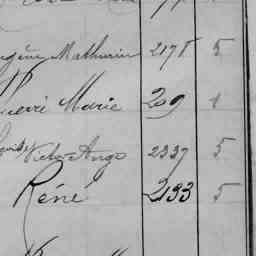 Mathurin 2178 5
Pierre Marie 209 1
Victor Ange 2337 5
Réné 2193 5